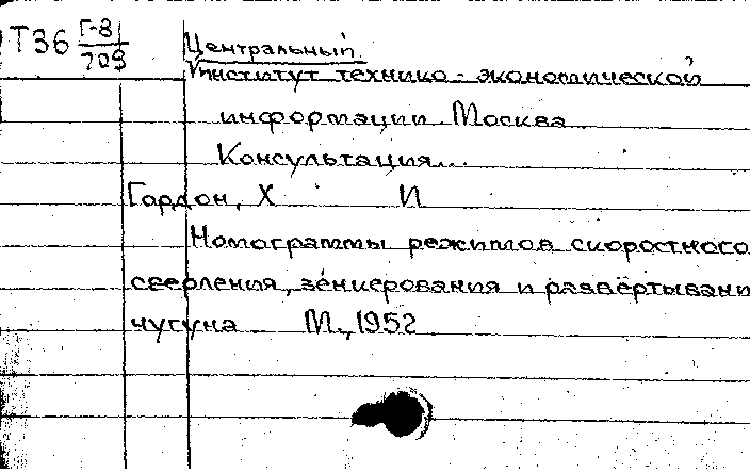 Т36 Г-81/709
Центральный
институт технико-экономической
информации Москва
Консультация...
Гордон, Х И
Номограммы режимов скоростного
сверления, зенкерования и развёртывани
чугуна М., 1952